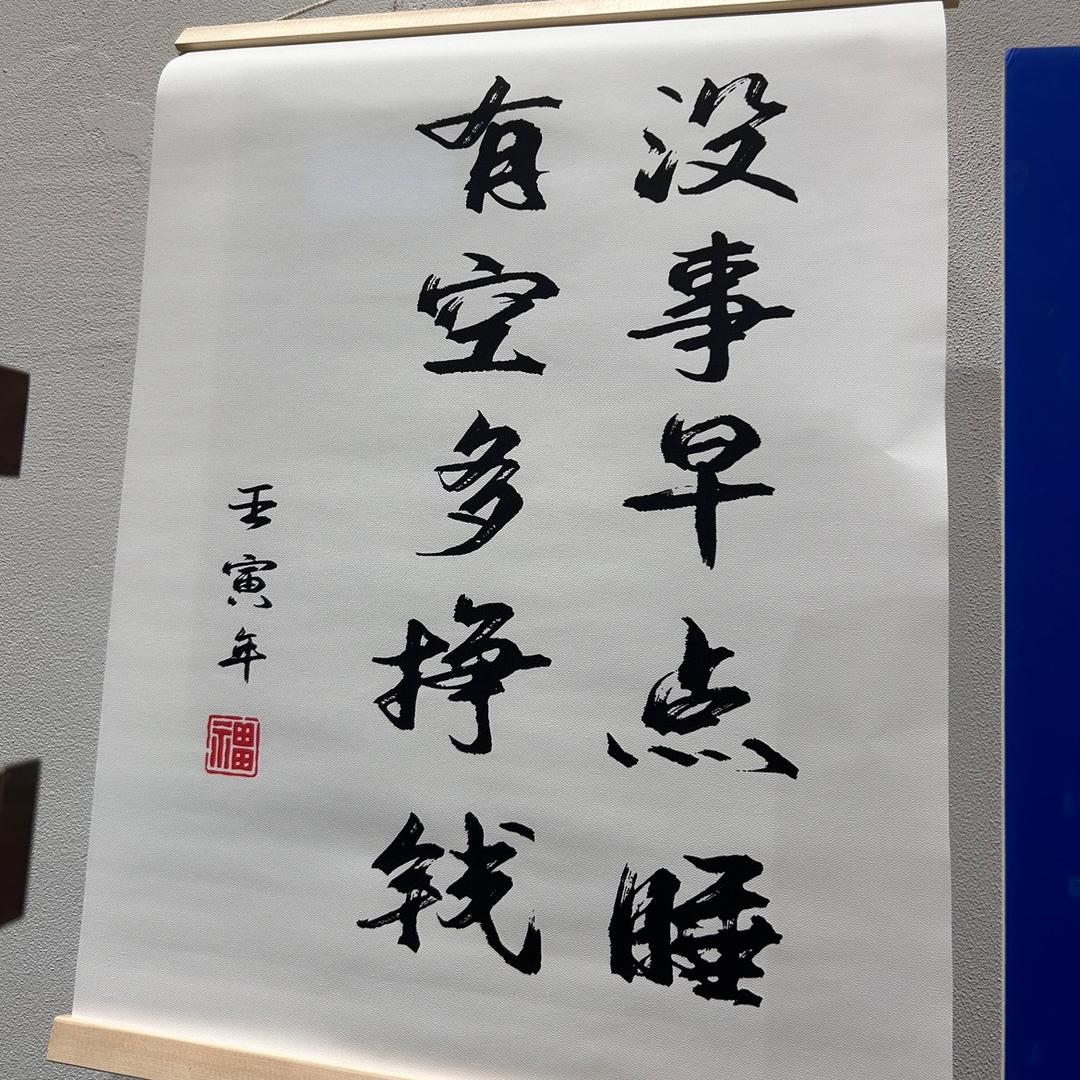 没事早点睡
有空多挣钱
壬寅年
福